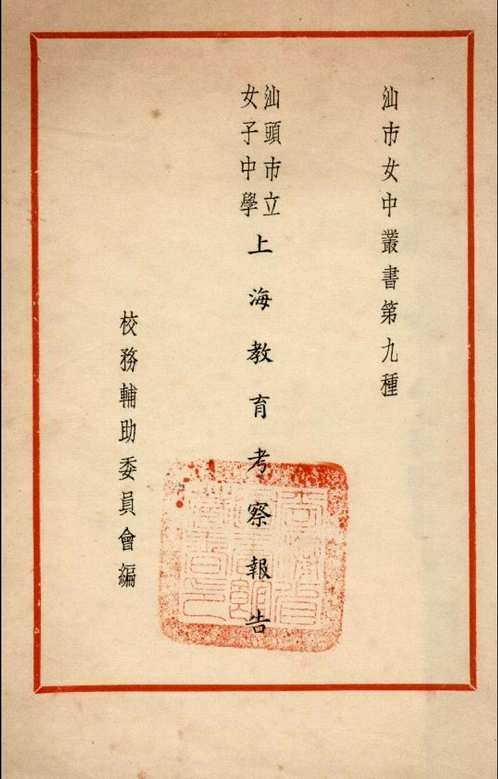 汕市女中叢書第九種
汕頭市立
女子中學
上海教育考察報告
校務輔助委員會編